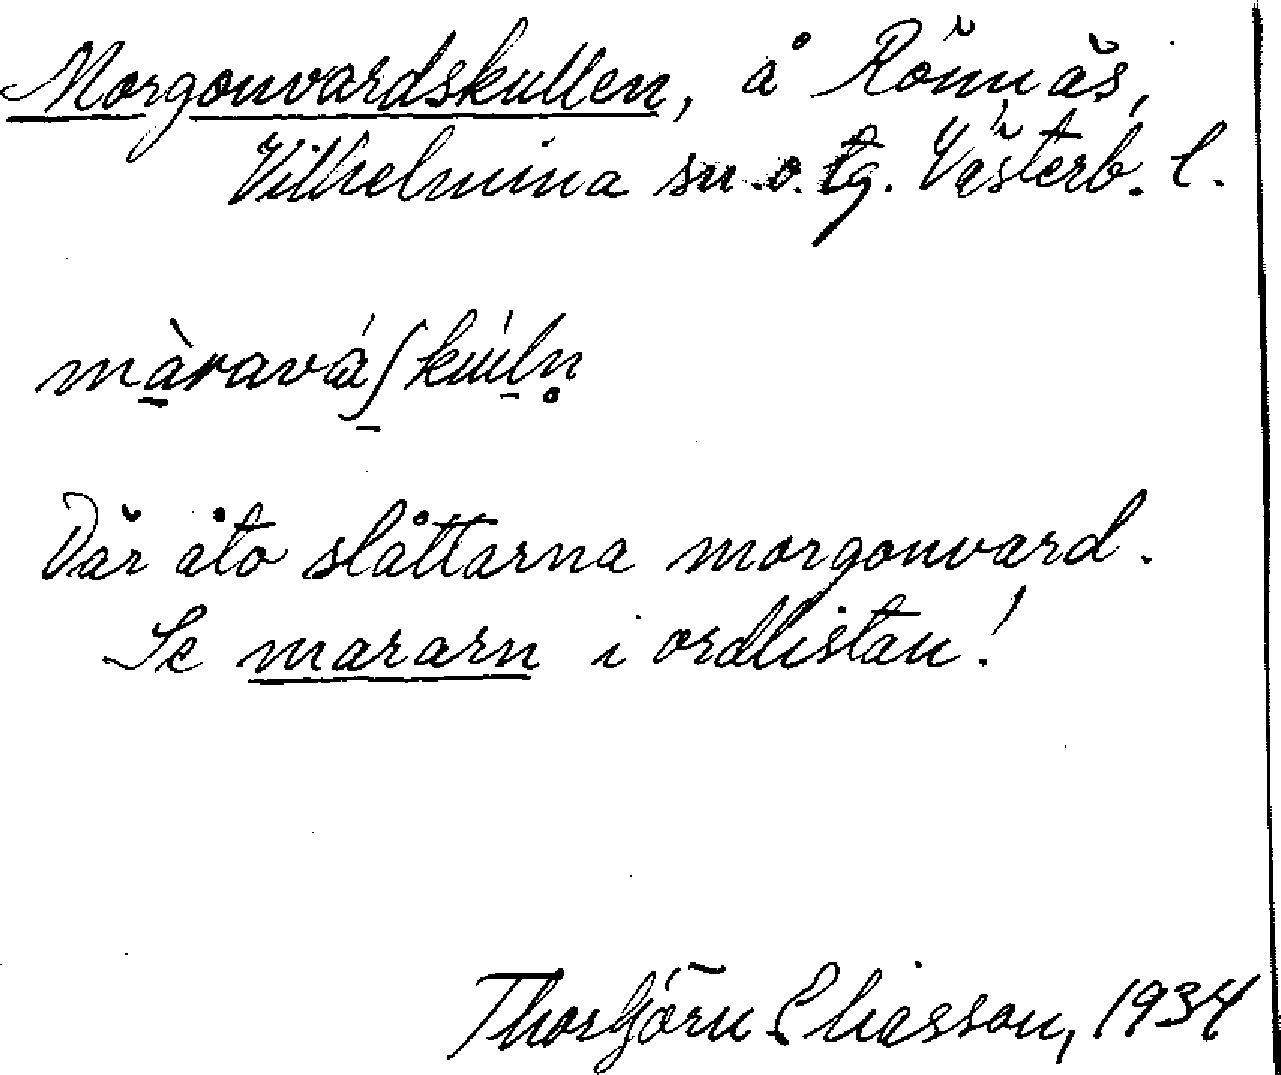 Morgonvardskullen, å Rönnäs,
Vilhelmina sn. o. tg. Västerb. l.
màravá∫kúln̥
Där åto slåttarna morgonvard.
Se mararn i ordlistan!
Thorbjörn Eliasson, 1934